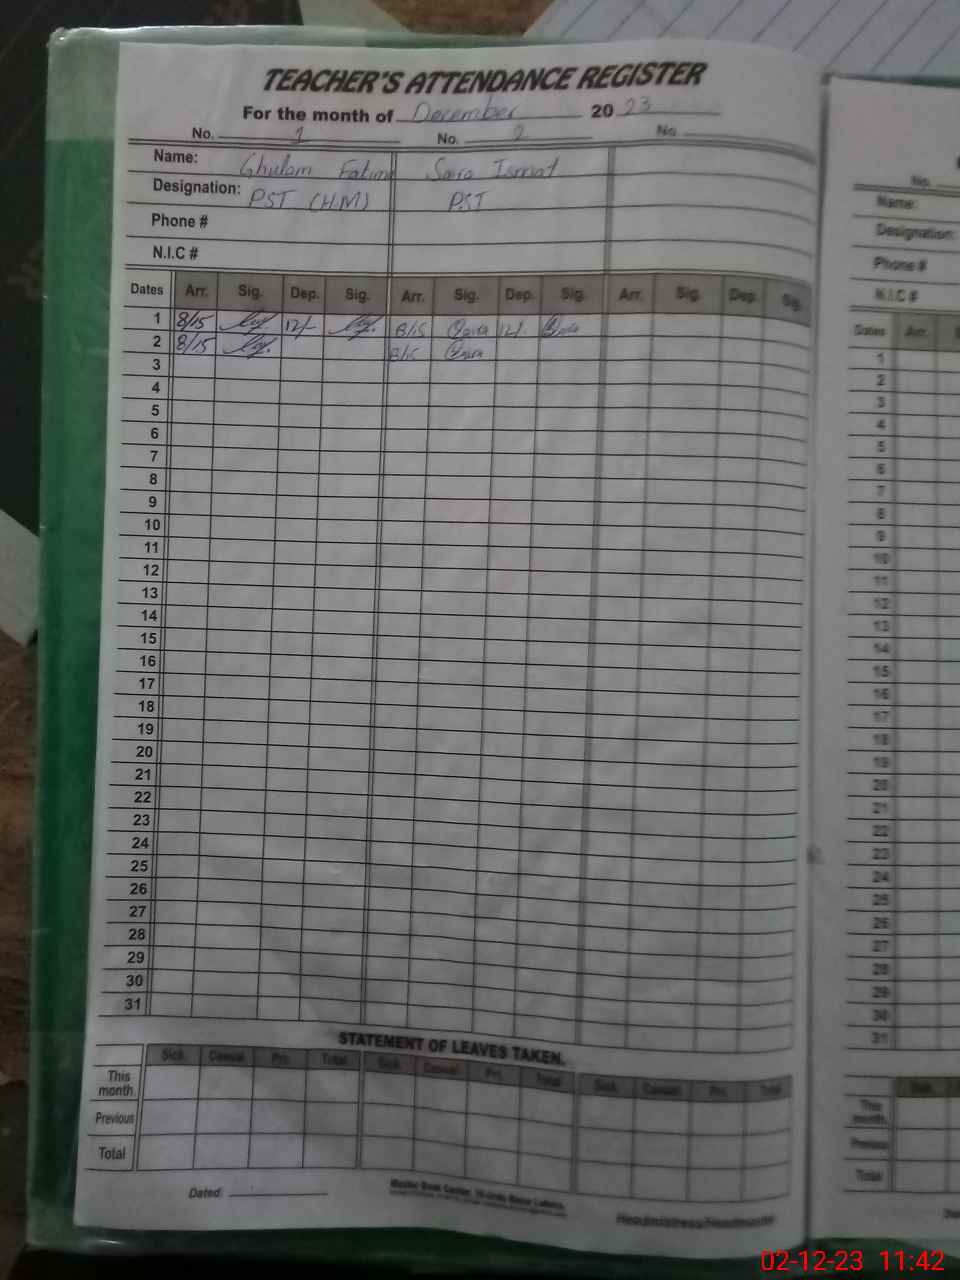 TEACHER'S ATTENDANCE REGISTER
For the month of December 2023
No. 1 No. 2 No.
Name: Ghulam Fatima Saira Ismat
Designation: PST (H.M) PST
Phone #
N.I.C #
Dates Arr. Sig. Dep. Sig. Arr. Sig. Dep. Sig. Arr. Sig. Dep. Sig.
1 8/15 12/- 8/15 12/-
2 8/15 8/15
3
4
5
6
7
8
9
10
11
12
13
14
15
16
17
18
19
20
21
22
23
24
25
26
27
28
29
30
31
STATEMENT OF LEAVES TAKEN.
Sick. Casual. Pri. Total. Sick. Casual. Pri. Total Sick. Casual. Pri. Total
This month.
Previous
Total
Dated:
Headmistress/Headmaster
No.
Name:
Designation:
Phone #
N.I.C #
Dates Arr.
1
2
3
4
5
6
7
8
9
10
11
12
13
14
15
16
17
18
19
20
21
22
23
24
25
26
27
28
29
30
31
Sick.
This month.
Previous
Total
02-12-23 11:42